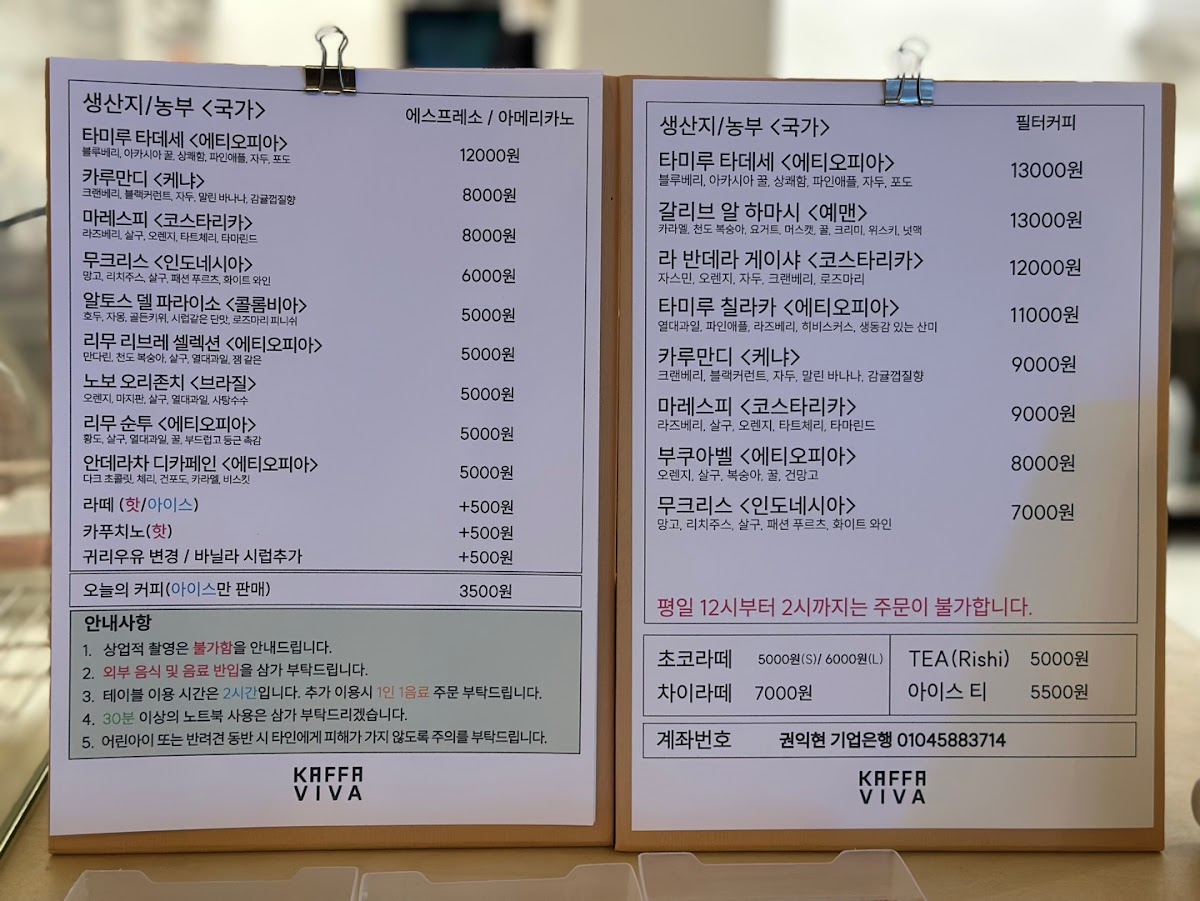 생산지/농부 <국가>
에스프레소 / 아메리카노
타미루 타데세 <에티오피아>
12000원
블루베리, 아카시아 꿀, 상쾌함, 파인애플, 자두, 포도
카루만디 <케냐>
8000원
크랜베리, 블랙커런트, 자두, 말린 바나나, 감귤껍질향
마레스피 <코스타리카>
8000원
라즈베리, 살구, 오렌지, 타트체리, 타마린드
무크리스 <인도네시아>
6000원
망고, 리치주스, 살구, 패션 푸르츠, 화이트 와인
알토스 델 파라이소 <콜롬비아>
5000원
호두, 자몽, 골든키위, 시럽같은 단맛, 로즈마리 피니쉬
리무 리브레 셀렉션 <에티오피아>
5000원
만다린, 천도 복숭아, 살구, 열대과일, 잼 같은
노보 오리존치 <브라질>
5000원
오렌지, 마지판, 살구, 열대과일, 사탕수수
리무 순투 <에티오피아>
5000원
황도, 살구, 열대과일, 꿀, 부드럽고 둥근 촉감
안데라차 디카페인 <에티오피아>
5000원
다크 초콜릿, 체리, 건포도, 카라멜, 비스킷
라떼 (핫/아이스)
+500원
카푸치노(핫)
+500원
귀리우유 변경 / 바닐라 시럽추가
+500원
오늘의 커피(아이스만 판매)
3500원
안내사항
1. 상업적 촬영은 불가함을 안내드립니다.
2. 외부 음식 및 음료 반입을 삼가 부탁드립니다.
3. 테이블 이용 시간은 2시간입니다. 추가 이용시 1인 1음료 주문 부탁드립니다.
4. 30분 이상의 노트북 사용은 삼가 부탁드리겠습니다.
5. 어린아이 또는 반려견 동반 시 타인에게 피해가 가지 않도록 주의를 부탁드립니다.
KAFFA
VIVA
생산지/농부 <국가>
필터커피
타미루 타데세 <에티오피아>
13000원
블루베리, 아카시아 꿀, 상쾌함, 파인애플, 자두, 포도
갈리브 알 하마시 <예맨>
13000원
카라멜, 천도 복숭아, 요거트, 머스캣, 꿀, 크리미, 위스키, 넛맥
라 반데라 게이샤 <코스타리카>
12000원
자스민, 오렌지, 자두, 크랜베리, 로즈마리
타미루 칠라카 <에티오피아>
11000원
열대과일, 파인애플, 라즈베리, 히비스커스, 생동감 있는 산미
카루만디 <케냐>
9000원
크랜베리, 블랙커런트, 자두, 말린 바나나, 감귤껍질향
마레스피 <코스타리카>
9000원
라즈베리, 살구, 오렌지, 타트체리, 타마린드
부쿠아벨 <에티오피아>
8000원
오렌지, 살구, 복숭아, 꿀, 건망고
무크리스 <인도네시아>
7000원
망고, 리치주스, 살구, 패션 푸르츠, 화이트 와인
평일 12시부터 2시까지는 주문이 불가합니다.
초코라떼 5000원(S)/ 6000원(L)
차이라떼 7000원
TEA(Rishi) 5000원
아이스 티 5500원
계좌번호 권익현 기업은행 01045883714
KAFFA
VIVA